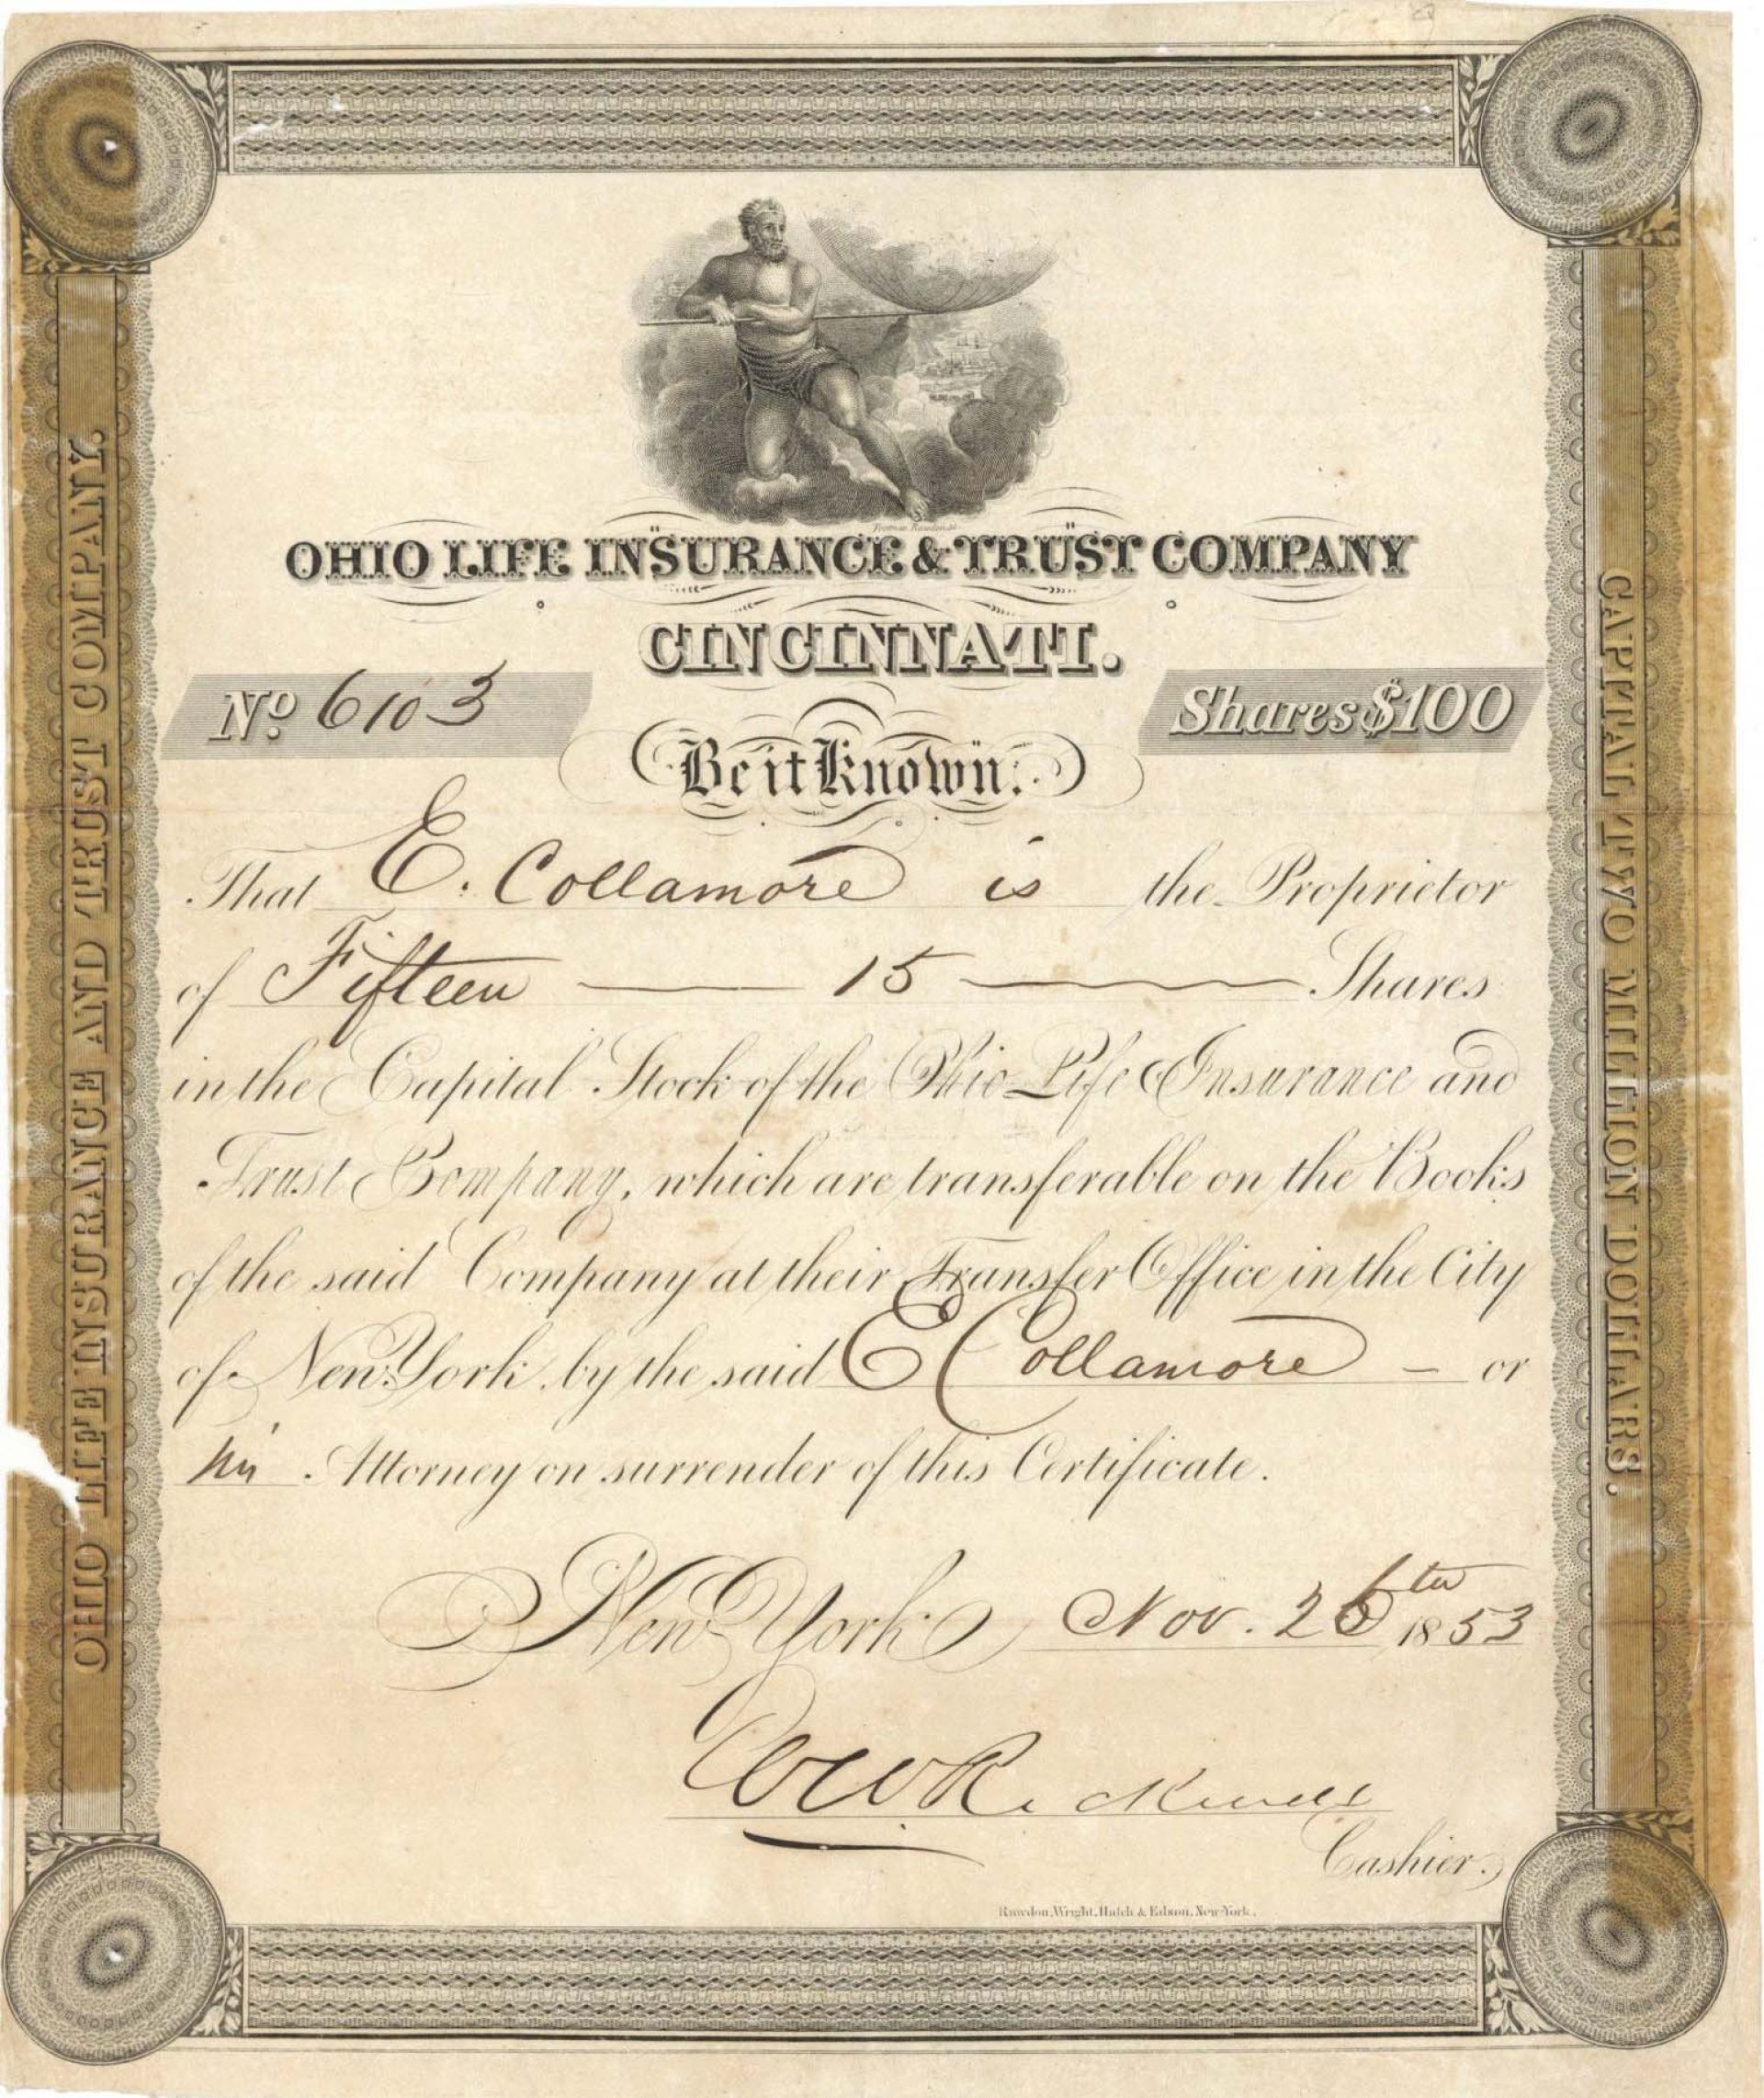 OHIO LIFE INSURANCE & TRUST COMPANY
CINCINNATI.
No. 6103
Shares $100
Be it Known.
That E. Collamore is the Proprietor
of Fifteen — 15 — Shares
in the Capital Stock of the Ohio Life Insurance and
Trust Company, which are transferable on the Books
of the said Company at their Transfer Office in the City
of New York by the said E Collamore – or
his Attorney on surrender of this Certificate.
New York Nov. 26th 1853
Cashier.
Rawdon, Wright, Hatch & Edson, New-York.
OHIO LIFE INSURANCE AND TRUST COMPANY.
CAPITAL TWO MILLION DOLLARS.